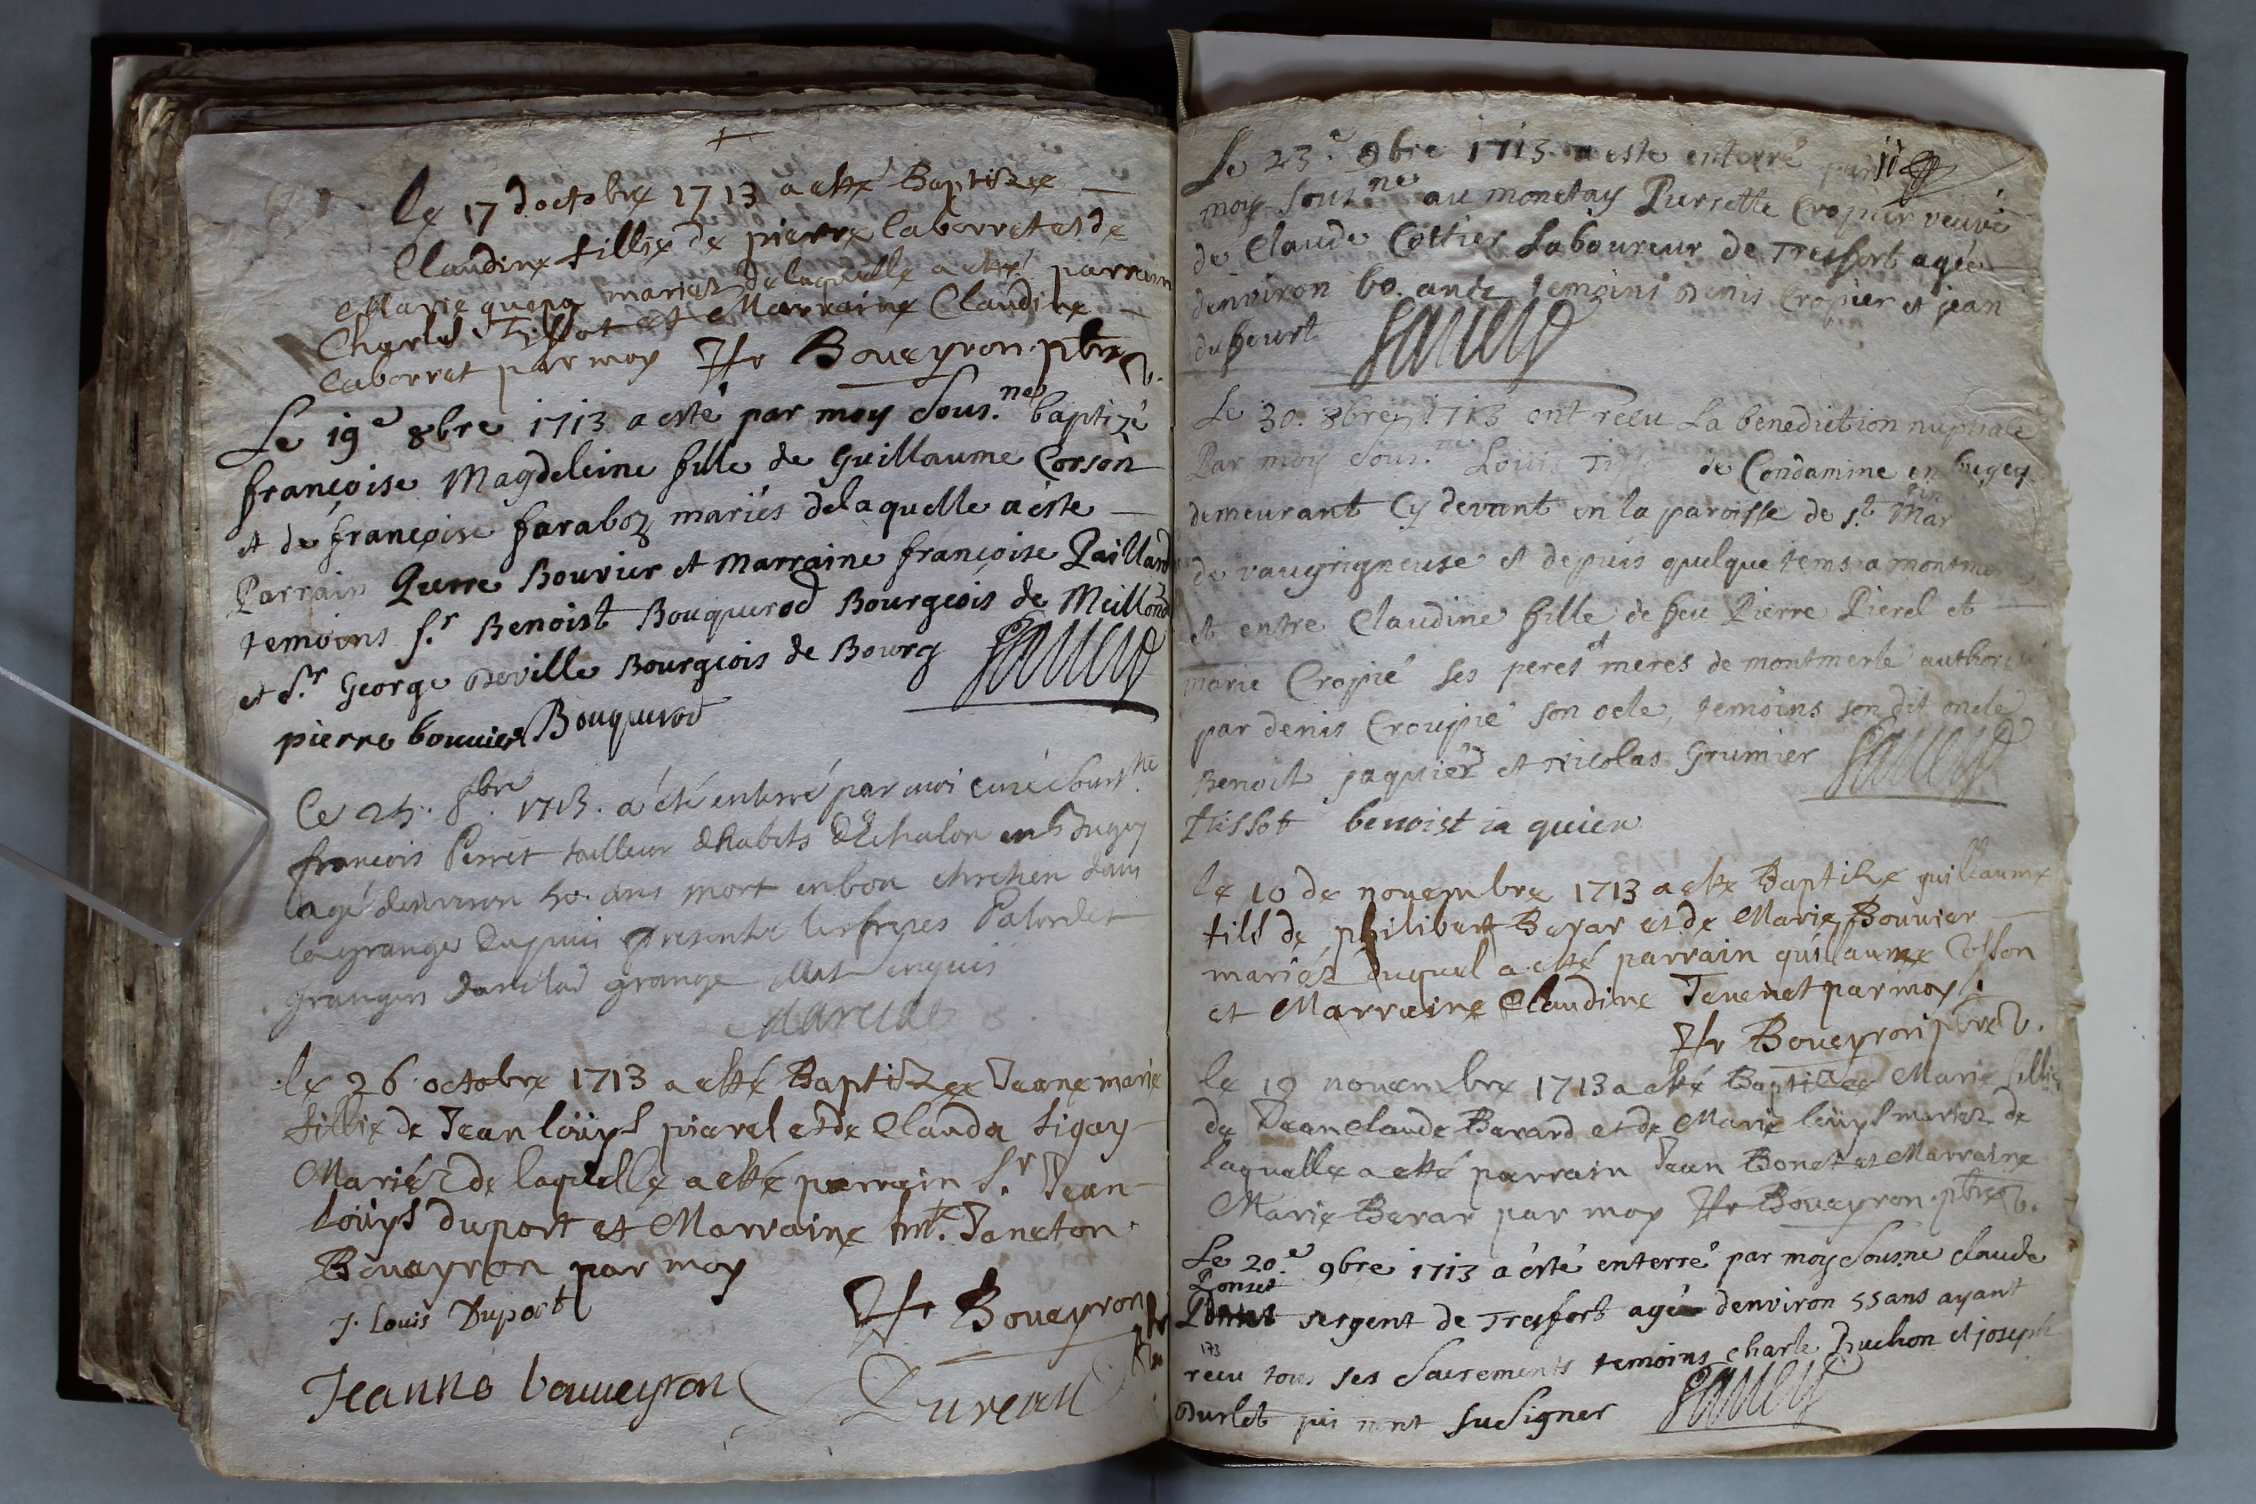 le 17 d'octobre 1713 a esté Baptizee
Claudine fillie de pierre laborret et de
Marie mariez de laquelle a esté parrain
Charles Tissot et Marraine Claudine
laborret par moy Boueyron pbre v.
Le 19e 8bre 1713 a esté par moy sous.ne baptizé
françoise Magdeleine fille de Guillaume Corson
et de françoise faraboz mariés de laquelle a este
Parrain Pierre Bouvier et Marraine françoise Paillard
temoins s.r Benoist Bouquerod Bourgeois de Meillona
et s.r George Deville Bourgeois de Bourg
pierre bouvier Bouquerod
Ce 25. 8bre 1713. a été enterré par moi curé soust.ne
françois Perret tailleur d'habits d'Echalon en Bugey
agé denviron 50. ans mort en bon chretien dans
la grange Dupuis presents les freres
grangers dans lad grange
le 26 octobre 1713 a esté Baptizee Jeane marie
fillie de Jean loüys pierel et de Clauda figay
Mariéz de laquelle a esté parrain S.r Jean
loüys duport et Marraine Janeton
Boueyron par moy
J. Louis Duport
Boueyron
Jeanne boueyron
Le 23.e 8bre 1713 a este enterré par
moy sous.ne au monetay Pierrette Cropier veuve
de Claude Cottier Laboureur de Tresfort agée
denviron 60. ans temoins Denis Cropier et jean
dufeurt
Le 30. 8bre 1713 ont recu La benediction nuptiale
Par moy sous.ne Loüis de Condamine en bugey
demeurant Cy devant en la paroisse de s.t Mar
de vaugrigneuse et depuis quelque tems a montme
et entre Claudine fille de feu Pierre Pierel et
marie Cropié ses peres et meres de montmerle authori
par denis Croupié son ocle, temoins son dit oncle
Benoit jaquier et Nicolas Grumier
tissot benoist ia quier
le 10 de novembre 1713 a esté Baptize guillaume
fils de philibert Berar et de Marie Bouvier
mariéz duquel a esté parrain guillaume Cosson
et Marraine Claudine Tevenet par moy
Boueyron pbre v.
le 19 novembre 1713 a esté Baptizee Marie fillie
de Jean Claude Berard et de Marie loüys mariez de
laquelle a esté parrain Jean Bonet et Marraine
Marie Berar par moy Boueyron pbre v.
Le 20.e 9bre 1713 a esté enterré par moy sous.ne claude
Ponset
sergent de Tresfort agé denviron 55 ans ayant
173
recu tous ses Sacrements temoins charle Buchon et joseph
Durlet qui nont su signer